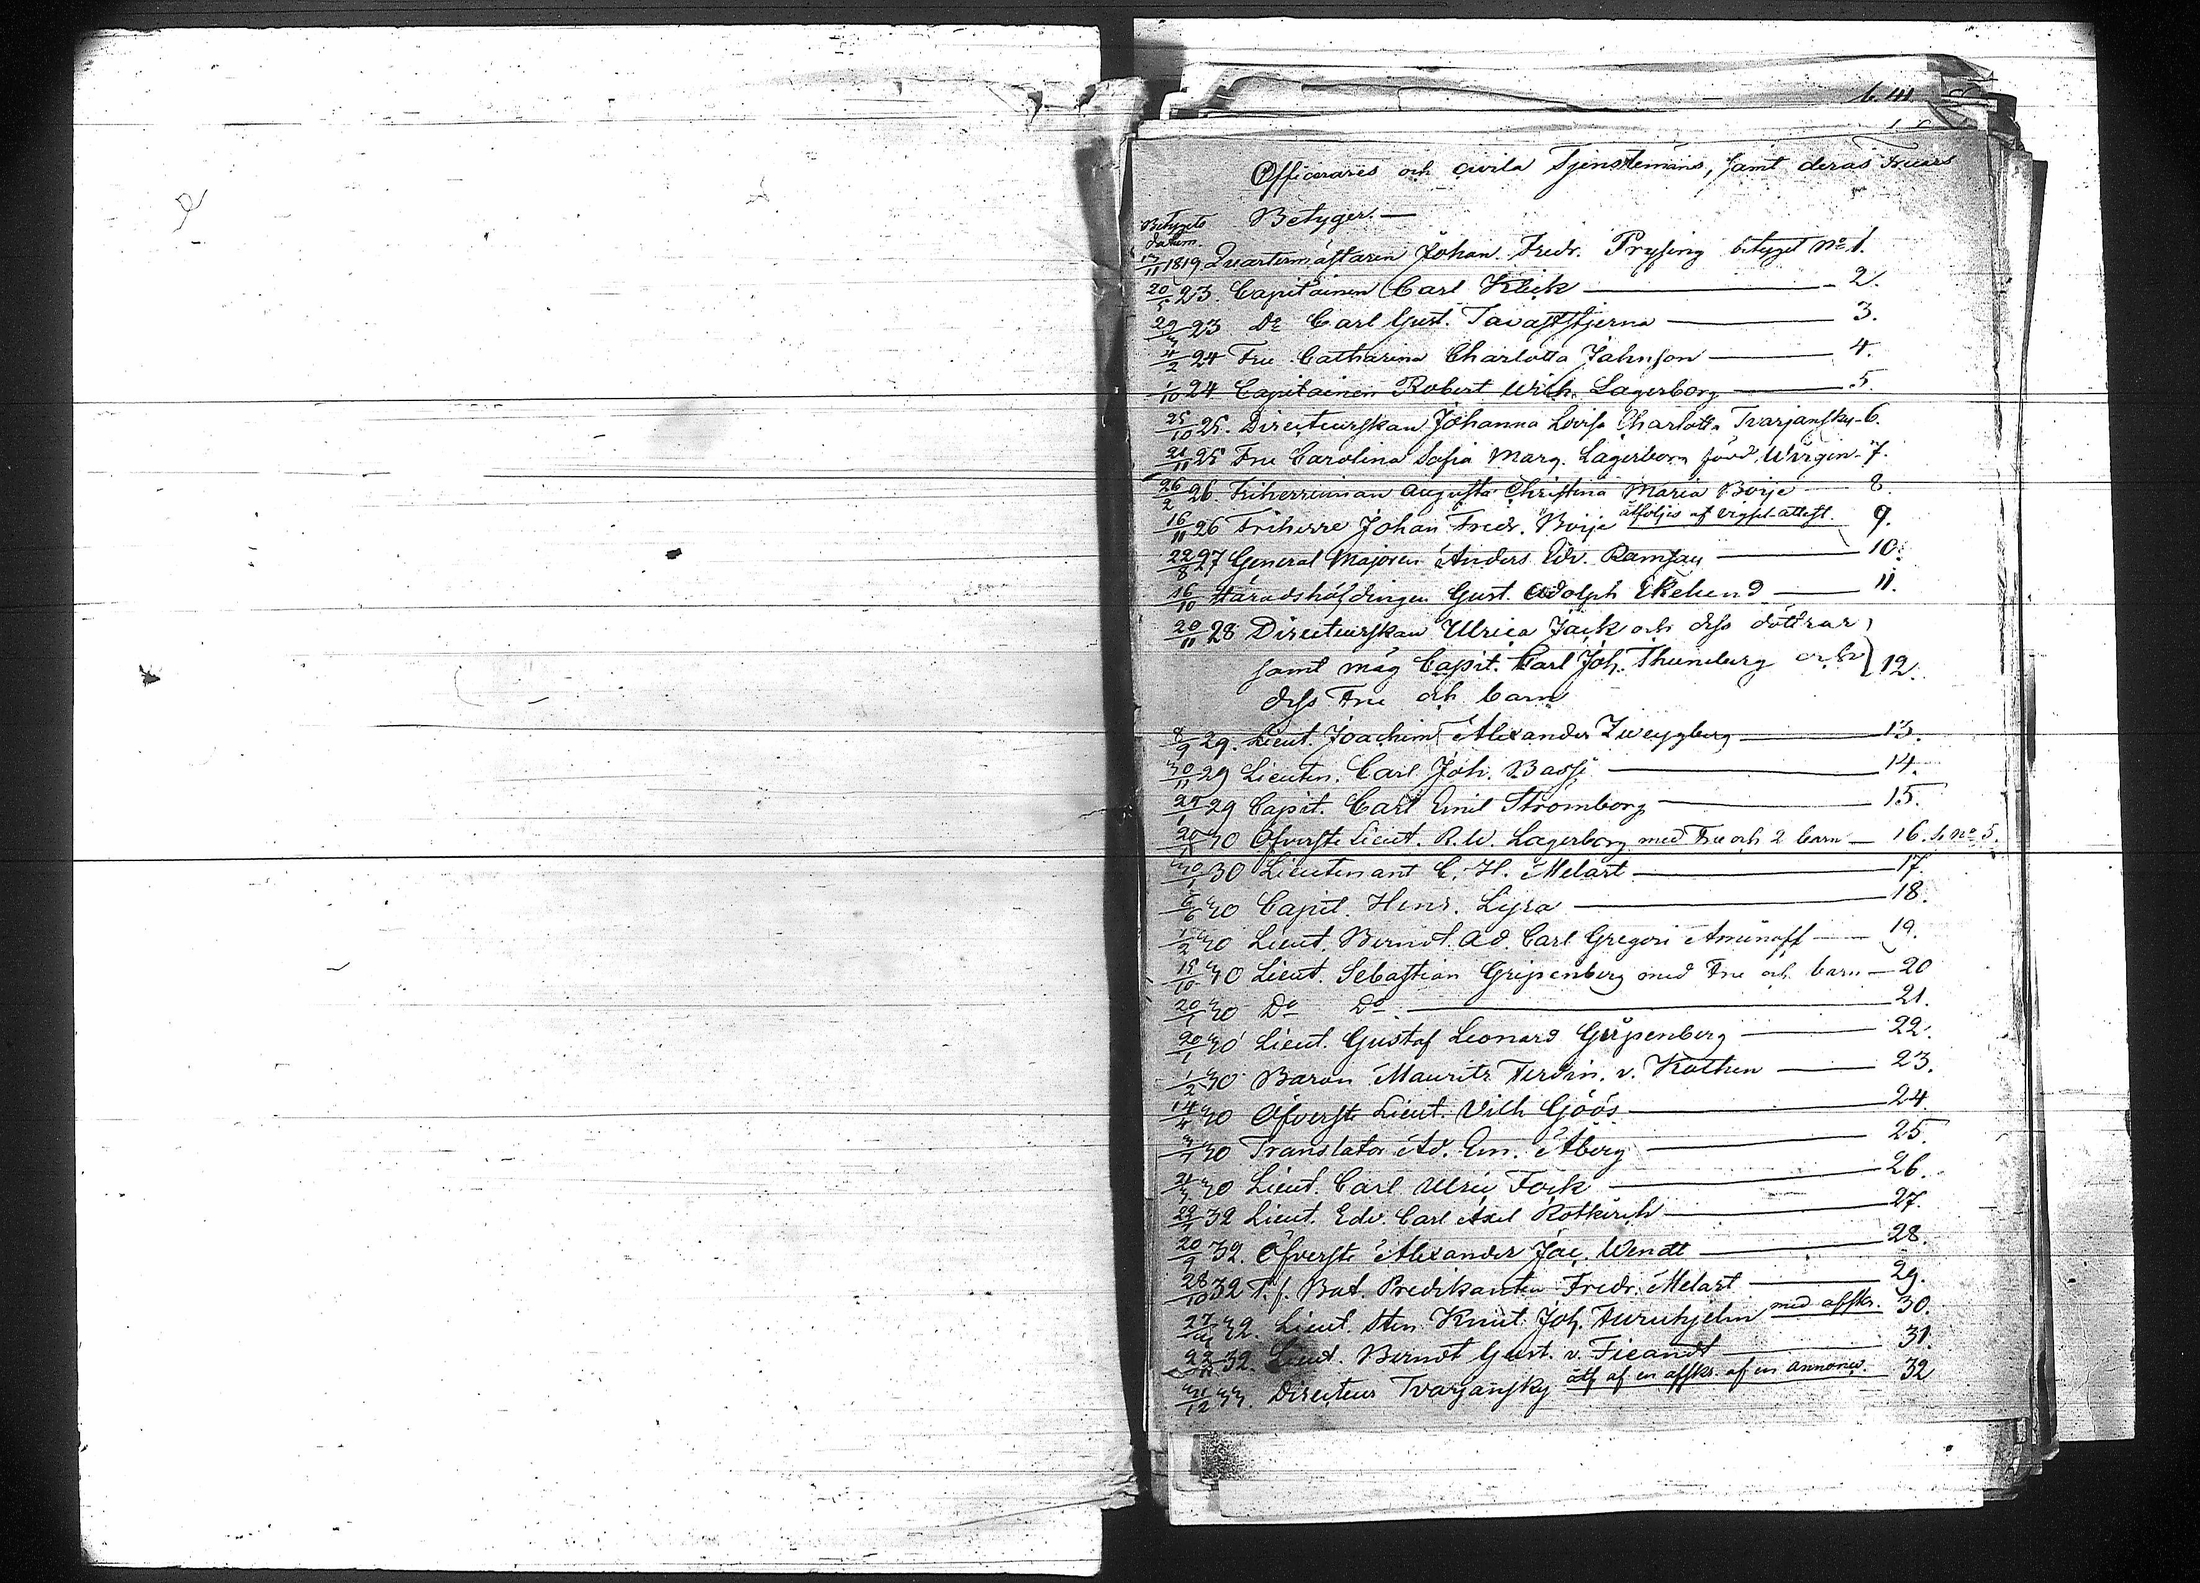 Officerares och civila Tjenstemäns, samt deras Fruars
Betygets Betyger. —
datum
13/11 1819 Quartermästaren Johan. Fredr. Prysing betyget No 1.
20/5 23. Capitainen Carl Klick — 2.
29/3 23 Do Carl Gust. Tavaststjerna — 3.
4/2 24 Fru Catharina Charlotta Jahnson — 4.
1/10 24 Capitainen Robert Wilh. Lagerborg — 5.
25/10 25. Directeurskan Johanna Lovisa Charlotta Tvarjansky - 6.
21/11 25 Fru Carolina Sofia Marg. Lagerborg född Wärgin - 7.
26/2 26 Friherrinnan Augusta Christina Maria Boije — 8.
16/11 26 Friherre Johan Fredr. Boije åtföljes af vigsel-attest. 9.
22/8 27 General Majoren Anders Edv. Ramsay — 10.
16/10 Häradshöfdingen Gust. Adolph Ekelund — 11.
20/11 28 Directeurskan Ulrica Jack och dess döttrar
samt måg Capit. Carl Joh. Thuneberg och } 12.
dess Fru och barn
8/9 29. Lieut. Joachim Alexander Zweygberg — 13.
30/11 29 Lieuten. Carl Joh. Basse — 14.
29/1 29 Capit. Carl Emil Stromborg — 15.
20/1 30 Öfverste Lieut. R. W. Lagerborg med Fru och 2 barn — 16. s. no 5.
30/1 30 Lieutenant C. H. Melart — 17.
6/6 30 Capit. Henr. Lyra — 18.
1/2 30 Lieut. Berndt Ad. Carl Gregori Aminoff — 19.
15/10 30 Lieut. Sebastian Gripenberg med Fru och barn — 20
20/1 30 Do Do — 21.
20/1 30 Lieut. Gustaf Leonard Gripenberg — 22.
1/2 30 Baron Mauritz Ferdin. v. Kothen — 23.
14/4 30 Öfverste Lieut. Vilh Göös — 24.
3/7 30 Translator Ad. Em. Åberg — 25.
30 Lieut. Carl Ulric Fock — 26.
32 Lieut. Edv. Carl Axel Rotkirch — 27.
20/9 32. Öfverste Alexander Jac. Wendt — 28.
28/10 32 T. f. Bat. Predikanten Fredr. Melart — 29.
32. Lieut. Sten Knut Joh. Furuhjelm med afskr. 30.
32. Lieut. Berndt Gust. v. Fieandt — 31.
33. Directeur Tvarjansky åtf af en afskr. af en annonce. 32